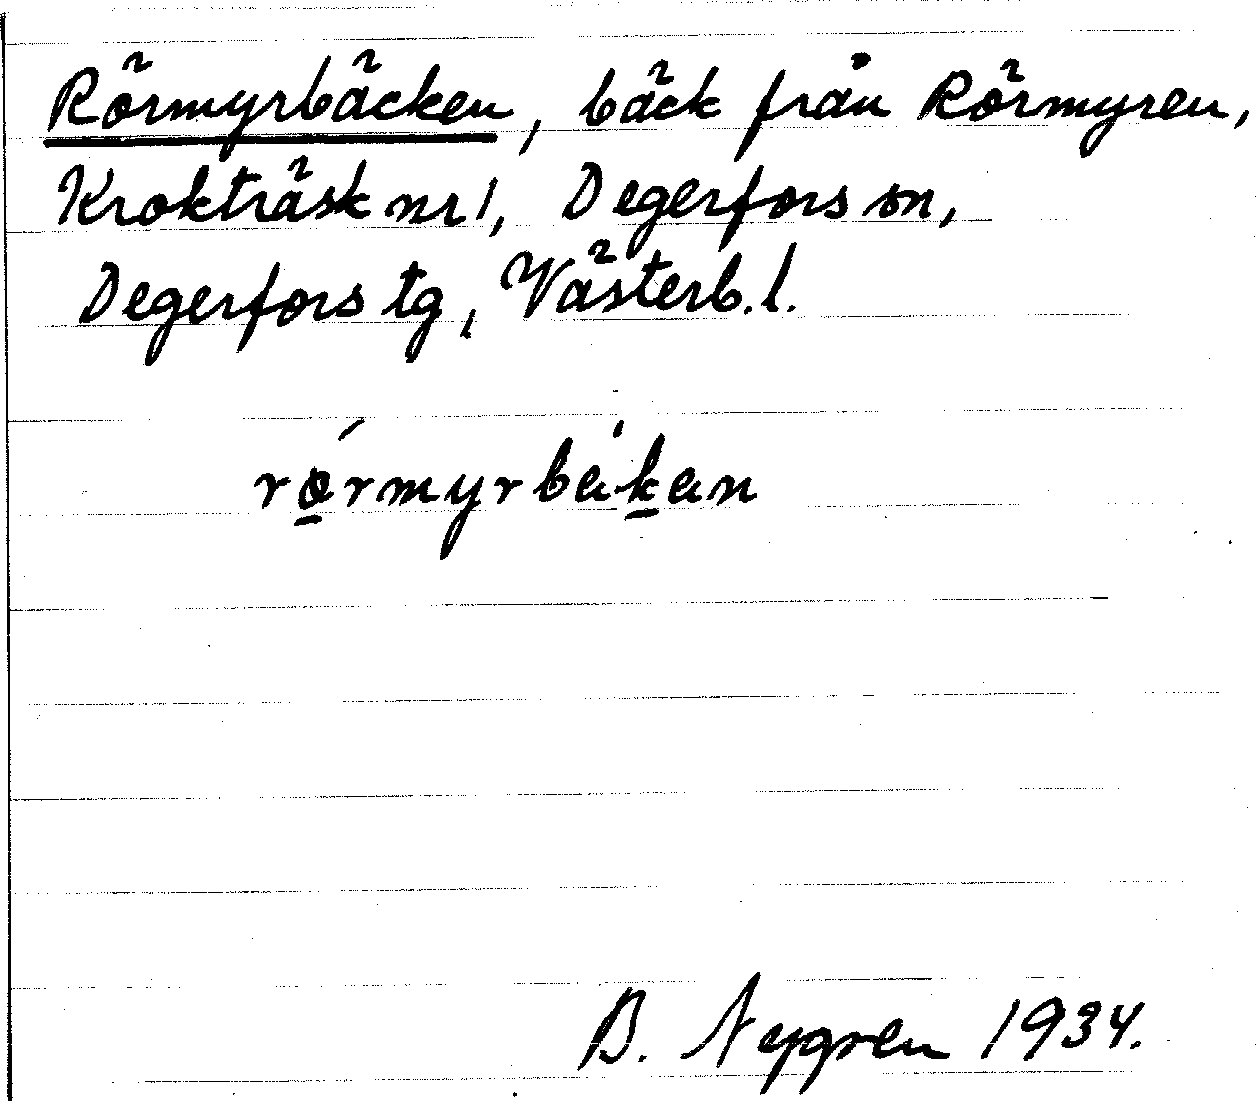 Rörmyrbäcken, bäck från Rörmyren,
Krokträsk nr 1, Degerfors sn,
Degerfors tg, Västerb. l.
rǫ́rmyrbäˈk̠an
B. Nygren 1934.